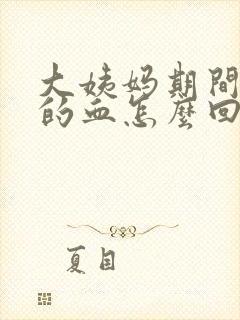 大姨妈期間
的血怎麼回
夏目